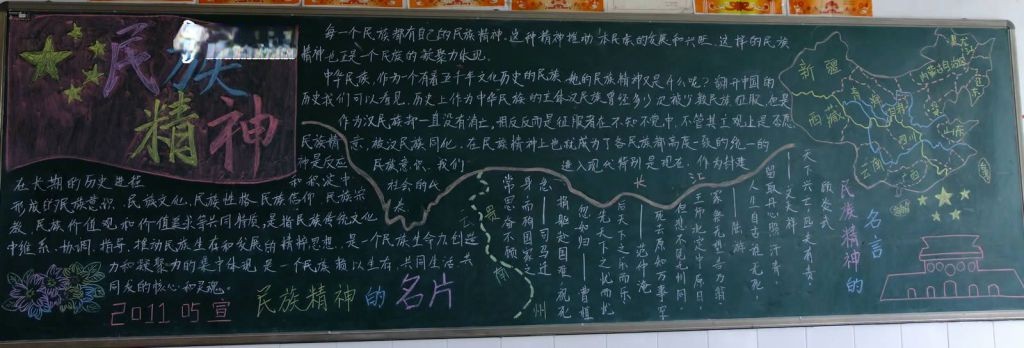 民族
精神
每一个民族都有自己的民族精神.这种精神推动本民族的发展和兴旺.这样的民族
精神也正是一个民族的凝聚力体现.
中华民族.作为一个有着五千年文化历史的民族.她的民族精神又是什么呢?翻开中国的
历史我们可以看见.历史上作为中华民族的主体汉民族曾经多少次被少数民族征服.但是
作为汉民族却一直没有消亡.相反反而是征服者在不知不觉中.不管其主观上是否愿
被汉民族同化.在民族精神上也就成为了各民族都高度一致的统一的
民族意识.我们
进入现代特别是现在.作为
社会的
民族精神
神是反应
在长期的历史进程
和积淀中
形成的民族意识.民族文化.民族性格.民族信仰.民族宗
教.民族价值观和价值追求等共同特质.是指民族传统文化
中维系.协调.指导.推动民族生存和发展的精神思想.是一个民族生命力.创造
力和凝聚力的集中体现.是一个民族赖以生存.共同生活.共
同发的核心和灵魂。
2011 05 宣
民族精神的名片
长
江
贵
州
常思奋不顾身
而殉国家之急
——司马迁
捐躯赴国难
视死忽如归
——曹植
先天下之忧而忧
后天下之乐而乐
——范仲淹
死去原知万事空
但悲不见九州同
王师北定中原日
家祭无忘告乃翁
——陆游
人生自古谁无死
留取丹心照汗青
——文天祥
天下兴亡匹夫有责
——顾炎武
民族精神的
名言
新疆
西藏
青海
内蒙古
四川
云南
山东